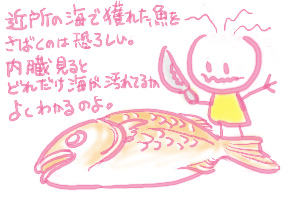 近所の海で獲れた魚を
さばくのは恐ろしい。
内臓見ると
どれだけ海が汚れてるか
よくわかるのよ。